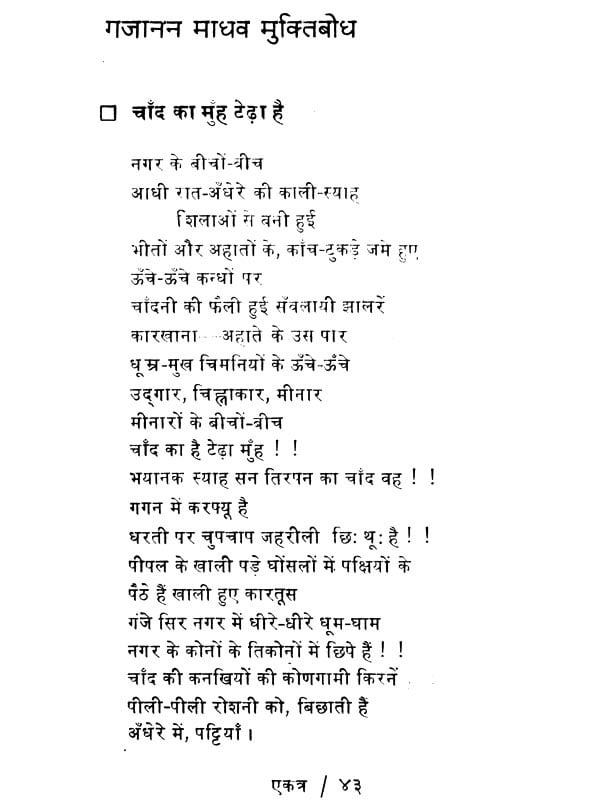 गजानन माधव मुक्तिबोध
चाँद का मुँह टेढ़ा है
नगर के बीचों-बीच
आधी रात-अँधेरे की काली-स्याह
शिलाओं से बनी हुई
भीतों और अहातों के, काँच-टुकड़े जमे हुए
ऊँचे-ऊँचे कन्धों पर
चाँदनी की फैली हुई सँवलायी झालरें
कारखाना—अहाते के उस पार
धूम्र-मुख चिमनियों के ऊँचे-ऊँचे
उद्‌गार, चिह्नाकार, मीनार
मीनारों के बीचों-बीच
चाँद का है टेढ़ा मुँह ! !
भयानक स्याह सन तिरपन का चाँद वह ! !
गगन में करफ्यू है
धरती पर चुपचाप जहरीली छि: थू: है ! !
पीपल के खाली पड़े घोंसलों में पक्षियों के
पैठे हैं खाली हुए कारतूस
गंजे सिर नगर में धीरे-धीरे धूम-घाम
नगर के कोनों के तिकोनों में छिपे हैं ! !
चाँद की कनखियों की कोणगामी किरनें
पीली-पीली रोशनी को, बिछाती हैं
अँधेरे में, पट्टियाँ ।
एकत्र / ४३